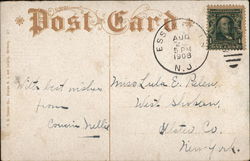 Post Card
ESSEX
AUG
5 PM
1908
N.J.
With best wishes
from
Cousin Nellie
Miss Lula E.
West
Ulster Co.
New York.